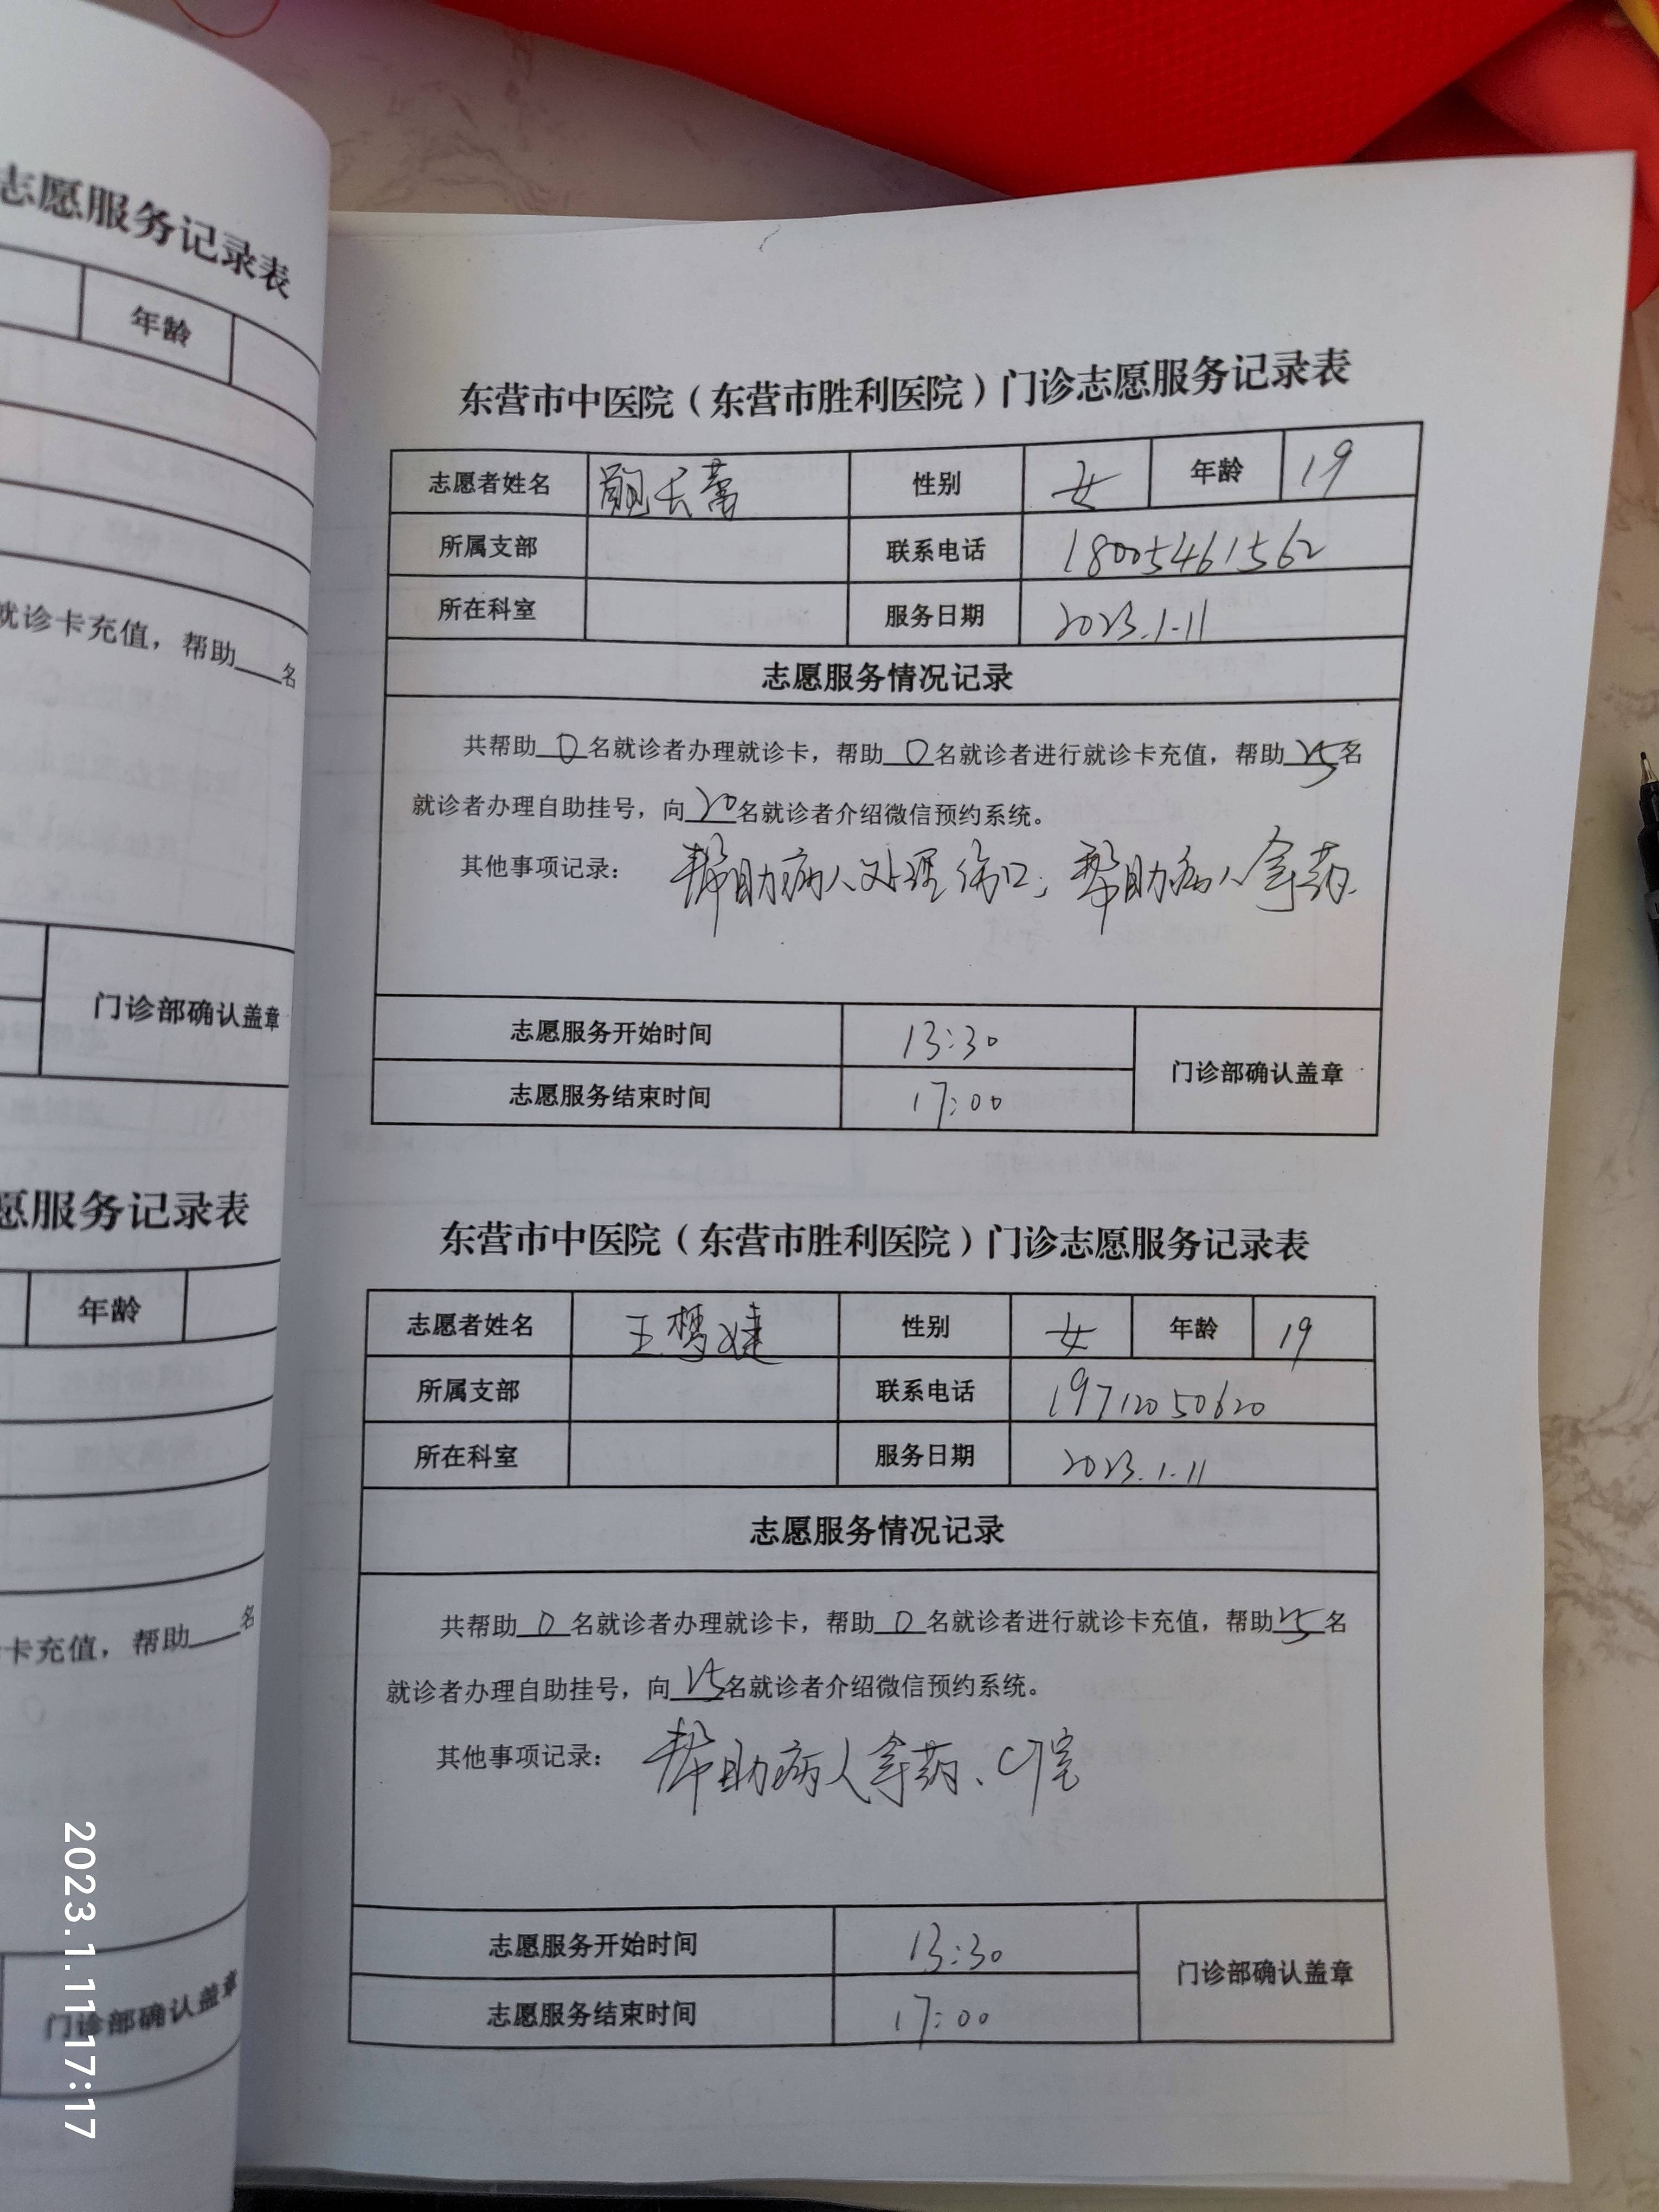 志愿服务记录表
年龄
就诊卡充值，帮助___名
门诊部确认盖章
愿服务记录表
年龄
卡充值，帮助___名
门诊部确认盖章
东营市中医院（东营市胜利医院）门诊志愿服务记录表
志愿者姓名 性别 女 年龄 19
所属支部 联系电话 18005461562
所在科室 服务日期 2023.1.11
志愿服务情况记录
共帮助 0 名就诊者办理就诊卡，帮助 0 名就诊者进行就诊卡充值，帮助 25 名
就诊者办理自助挂号，向 20 名就诊者介绍微信预约系统。
其他事项记录： 帮助病人处理伤口；帮助病人拿药.
志愿服务开始时间 13:30
门诊部确认盖章
志愿服务结束时间 17:00
东营市中医院（东营市胜利医院）门诊志愿服务记录表
志愿者姓名 王梦婕 性别 女 年龄 19
所属支部 联系电话 19712050620
所在科室 服务日期 2023.1.11
志愿服务情况记录
共帮助 0 名就诊者办理就诊卡，帮助 0 名就诊者进行就诊卡充值，帮助 25 名
就诊者办理自助挂号，向 25 名就诊者介绍微信预约系统。
其他事项记录： 帮助病人拿药、CT室
志愿服务开始时间 13:30
门诊部确认盖章
志愿服务结束时间 17:00
2023.1.11 17:17